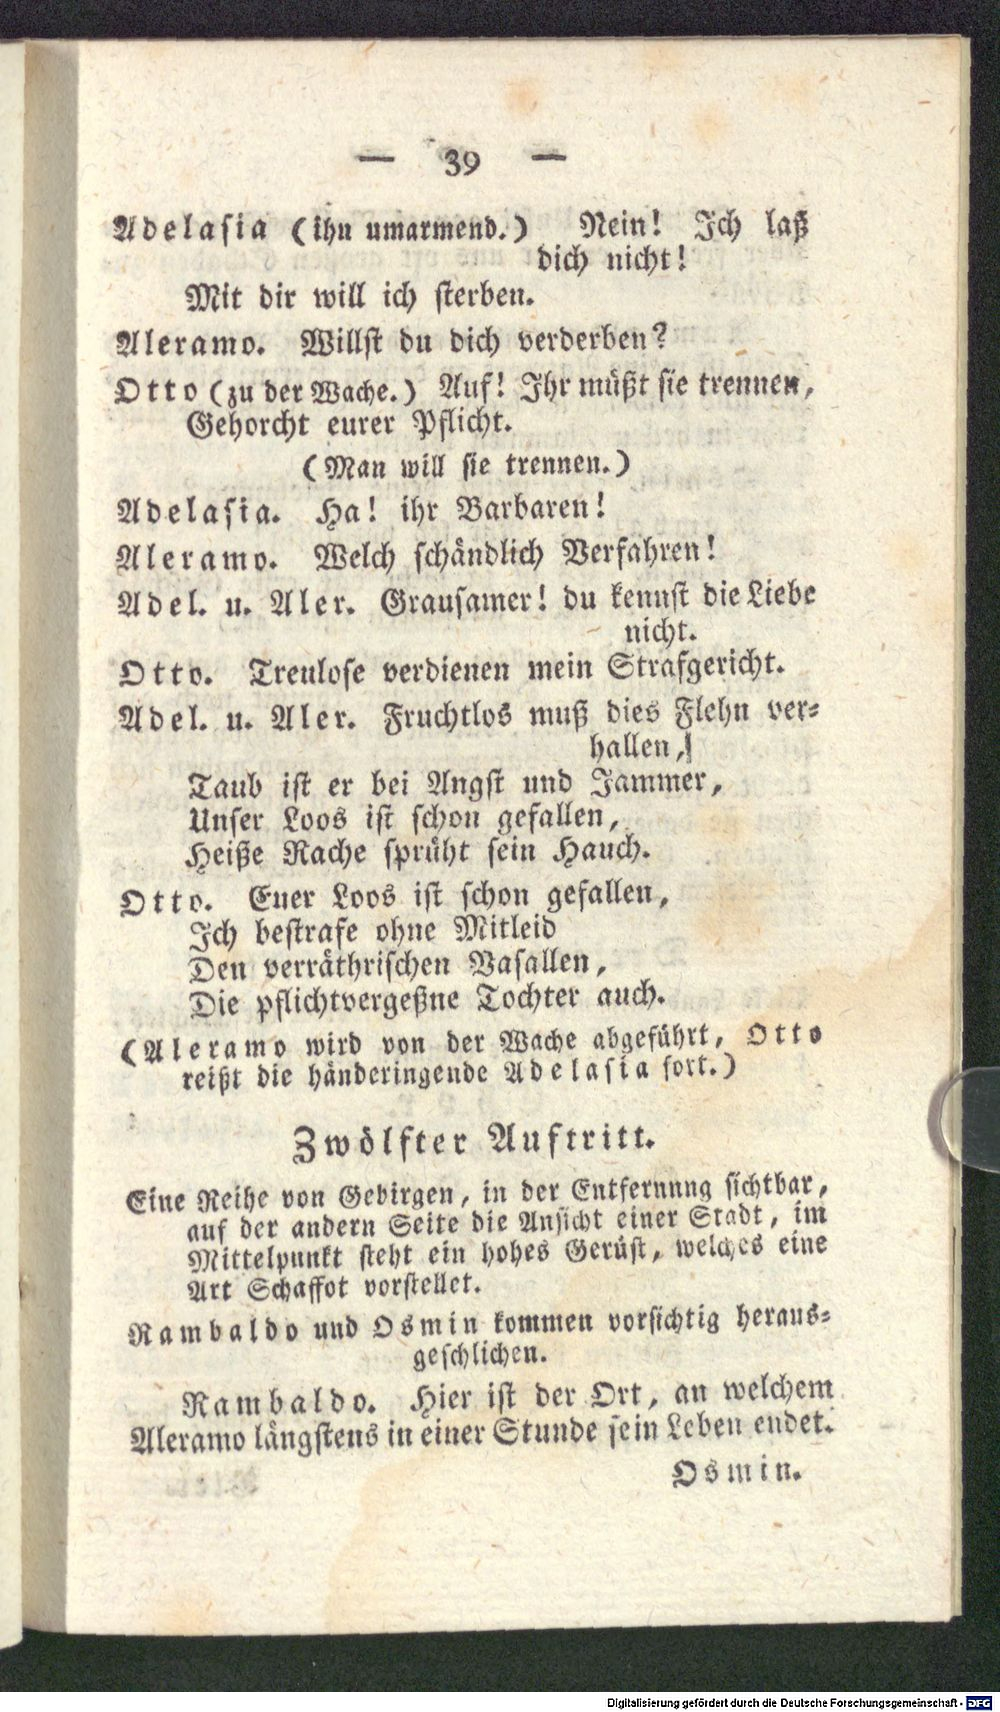 — 39 —
Adelasia (ihn umarmend.) Nein! Ich laß
dich nicht!
Mit dir will ich sterben.
Aleramo. Willst du dich verderben?
Otto (zu der Wache.) Auf! Ihr müßt sie trennen,
Gehorcht eurer Pflicht.
(Man will sie trennen.)
Adelasia. Ha! ihr Barbaren!
Aleramo. Welch schändlich Verfahren!
Adel. u. Aler. Grausamer! du kennst die Liebe
nicht.
Otto. Treulose verdienen mein Strafgericht.
Adel. u. Aler. Fruchtlos muß dies Flehn ver-
hallen,
Taub ist er bei Angst und Jammer,
Unser Loos ist schon gefallen,
Heiße Rache sprüht sein Hauch.
Otto. Euer Loos ist schon gefallen,
Ich bestrafe ohne Mitleid
Den verräthrischen Vasallen,
Die pflichtvergeßne Tochter auch.
(Aleramo wird von der Wache abgeführt, Otto
reißt die händeringende Adelasia fort.)
Zwölfter Auftritt.
Eine Reihe von Gebirgen, in der Entfernung sichtbar,
auf der andern Seite die Ansicht einer Stadt, im
Mittelpunkt steht ein hohes Gerüst, welches eine
Art Schaffot vorstellet.
Rambaldo und Osmin kommen vorsichtig heraus-
geschlichen.
Rambaldo. Hier ist der Ort, an welchem
Aleramo längstens in einer Stunde sein Leben endet.
Osmin.
Digitalisierung gefördert durch die Deutsche Forschungsgemeinschaft - DFG